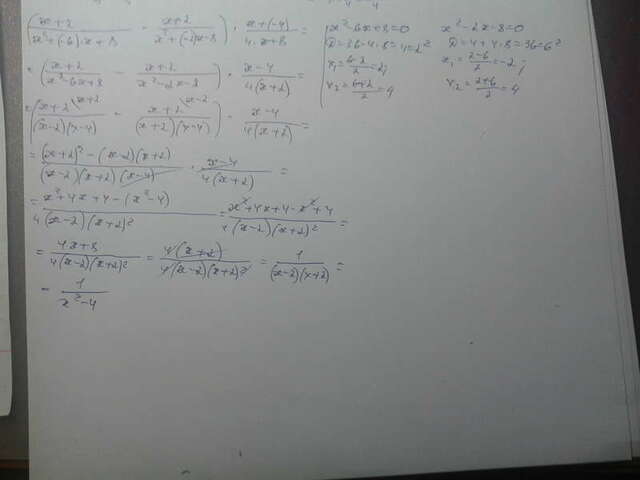 (x+2 / x²+(-6)·x+8 - x+2 / x²+(-2)x-8) · x+(-4) / 4·x+8 =
= (x+2 / x²-6x+8 - x+2 / x²-2x-8) · x-4 / 4(x+2) =
= (x+2 \x+2 / (x-2)(x-4) - x+2 \x-2 / (x+2)(x-4)) · x-4 / 4(x+2) =
= (x+2)² - (x-2)(x+2) / (x-2)(x+2)(x-4) · x-4 / 4(x+2) =
= x²+4x+4-(x²-4) / 4(x-2)(x+2)² = x²+4x+4-x²+4 / 4(x-2)(x+2)² =
= 4x+8 / 4(x-2)(x+2)² = 4(x+2) / 4(x-2)(x+2)² = 1 / (x-2)(x+2) =
= 1 / x²-4
x²-6x+8=0
D=36-4·8=4=2²
x₁=6-2/2=2;
x₂=6+2/2=4
x²-2x-8=0
D=4+4·8=36=6²
x₁=2-6/2=-2;
x₂=2+6/2=4